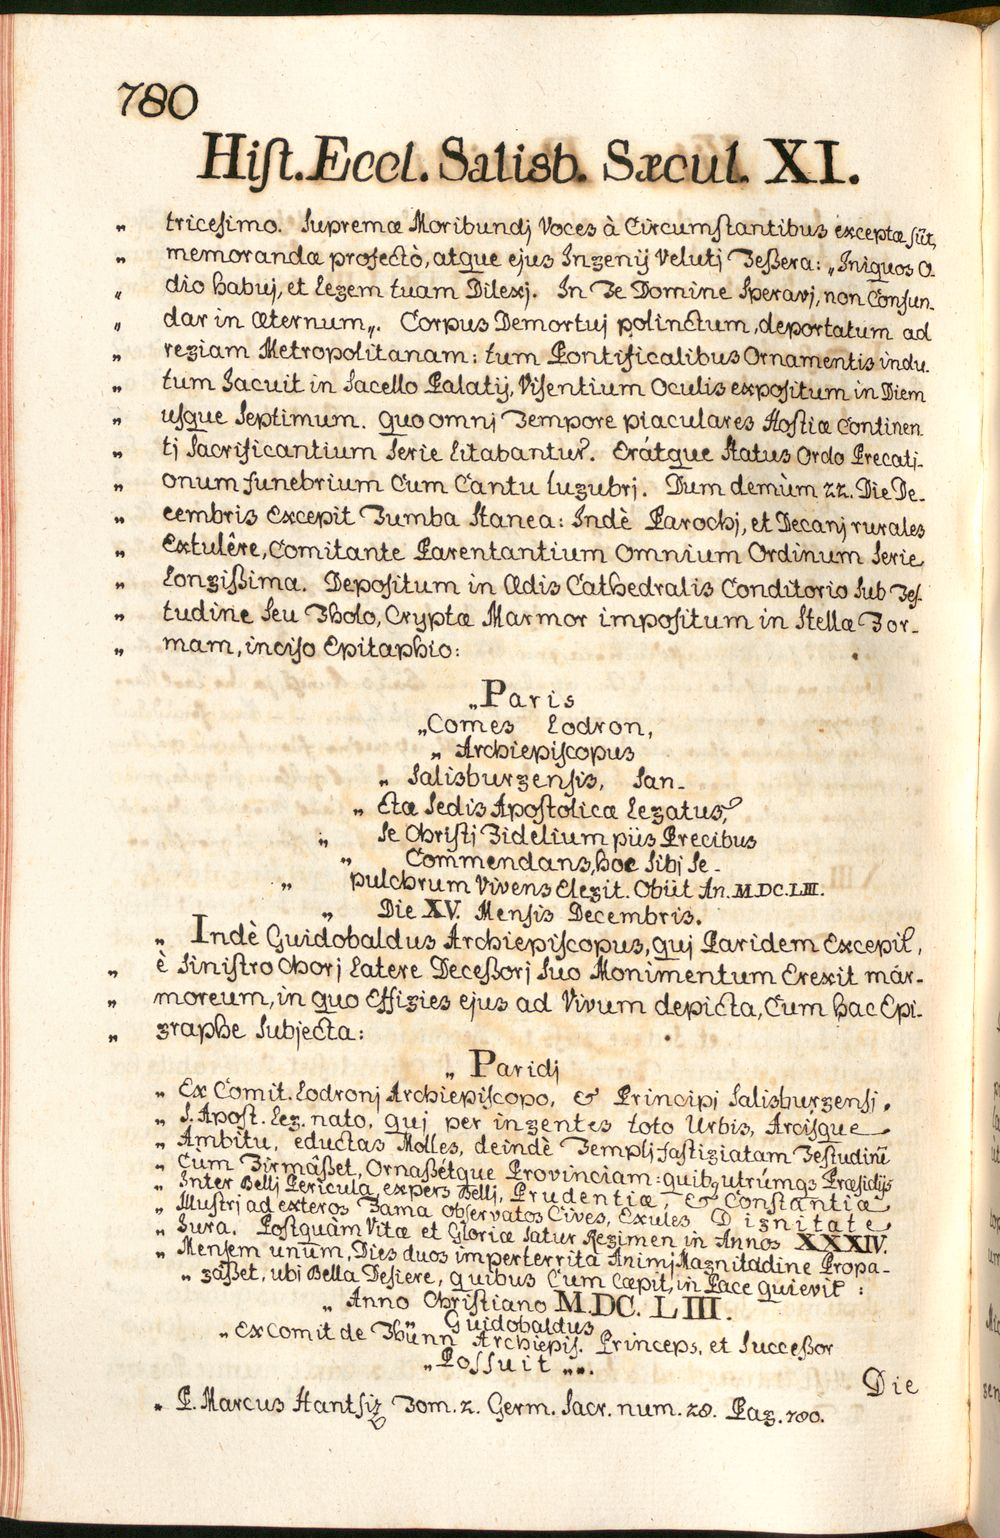 780
Hist. Eccl. Salisb. Sæcul. XI.
„ tricesimo. Supremæ Moribundj Voces à Circumstantibus exceptæ sũt,
„ memorandæ profectò, atque ejus Ingenij Velutj Tessera: „Iniquos O.
„ dio habuj, et Legem tuam Dilexj. In Te Domine Speravj, non Confun-
„ dar in æternum„. Corpus Demortuj polinctum, deportatum ad
„ regiam Metropolitanam: tum Pontificalibus Ornamentis indu.
„ tum Jacuit in Sacello Palatij, Visentium Oculis expositum in Diem
„ usque Septimum. quo omnj Tempore piaculares Hostiæ Continen
„ tj Sacrificantium Serie Litabantur. Erátque Status Ordo Precatj-
„ onum funebrium Cum Cantu lugubrj. Dum demùm 22. Die De-
„ cembris Excepit Tumba Stanea: Indè Parochj, et Decanj rurales
„ Extulêre, Comitante Parentantium Omnium Ordinum Serie
„ Longissima. Depositum in Ædis Cathedralis Conditorio Sub Tes.
„ tudine Seu Tholo, Cryptæ Marmor impositum in Stellæ For-
„ mam, inciso Epitaphio:
„Paris
„Comes Lodron,
„ Archiepiscopus
„ Salisburgensis, San-
„ ctæ Sedis Apostolicæ Legatus,
„ Se Christj Fidelium piis Precibus
„ Commendans, hoc Sibj Se-
„ pulchrum Vivens Elegit. Obiit An. M.DC.LIII.
„ Die XV. Mensis Decembris.
„ Indè Guidobaldus Archiepiscopus, quj Paridem Excepit,
„ è Sinistro Chorj Latere Decessorj Suo Monimentum Erexit mar-
„ moreum, in quo Effigies ejus ad Vivum depicta, Cum hac Epi-
„ graphe Subjecta:
„ Paridj
„ Ex Comit. Lodronj Archiepiscopo, & Principj Salisburgensj,
„ S. Apost. Leg. nato, quj per ingentes toto Urbis, Arcisque
„ Ambitu, eductas Molles, deindè Templj fastigiatam Testudinẽ
„ Cùm Firmâsset, Ornassétque Provinciam: quibq utrúmqs Præsidijs
„ Inter Bellj Pericula, expers Bellj, Prudentiæ, & Constantiæ
„ Illustrj ad exteros Fama Observatos Cives, Exules Dignitate
„ Jura. Postquàm Vitæ et Gloriæ Satur Regimen in Annos XXXIV.
„ Mensem unum, Dies duos imperterrita Animj Magnitudine Propa-
„ gâsset, ubi Bella Desiere, quibus Cum Cæpit, in Pace quievit:
„ Anno Christiano M.DC. LIII.
„ Guidobaldus
„ Ex Comit de Thünn Archiepis. Princeps, et Successor
„Possuit „.
Die
„ P. Marcus Hantsiz Tom. 2. Germ. Sacr. num. 28. Pag. 780.